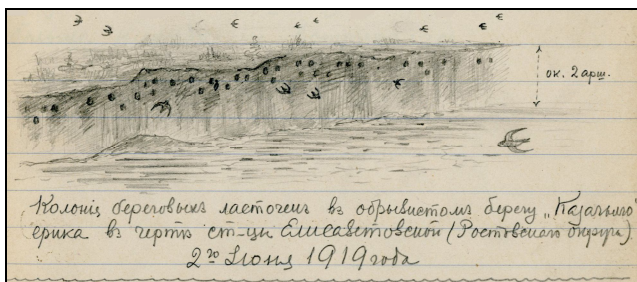 ок. 2 арш.
Колонія береговыхъ ласточекъ въ обрывистомъ берегу „Казачьяго"
ерика въ чертѣ ст-цы Елисаветовской (Ростовскаго округа)
2го Іюня 1919 года